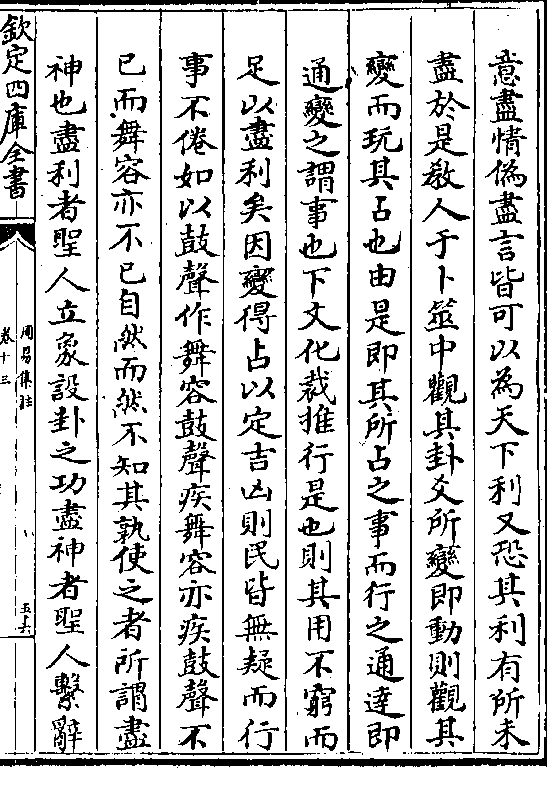 意盡情偽盡言皆可以為天下利又恐其利有所未
盡於是教人于卜筮中觀其卦爻所變即動則觀其
變而玩其占也由是即其所占之事而行之通達即
通變之謂事也下文化裁推行是也則其用不窮而
足以盡利矣因變得占以定吉凶則民皆無疑而行
事不倦如以鼓聲作舞容鼓聲疾舞容亦疾鼓聲不
已而舞容亦不已自然而然不知其孰使之者所謂盡
神也盡利者聖人立象設卦之功盡神者聖人繫辭
欽定四庫全書
周易集註
卷十三
五六